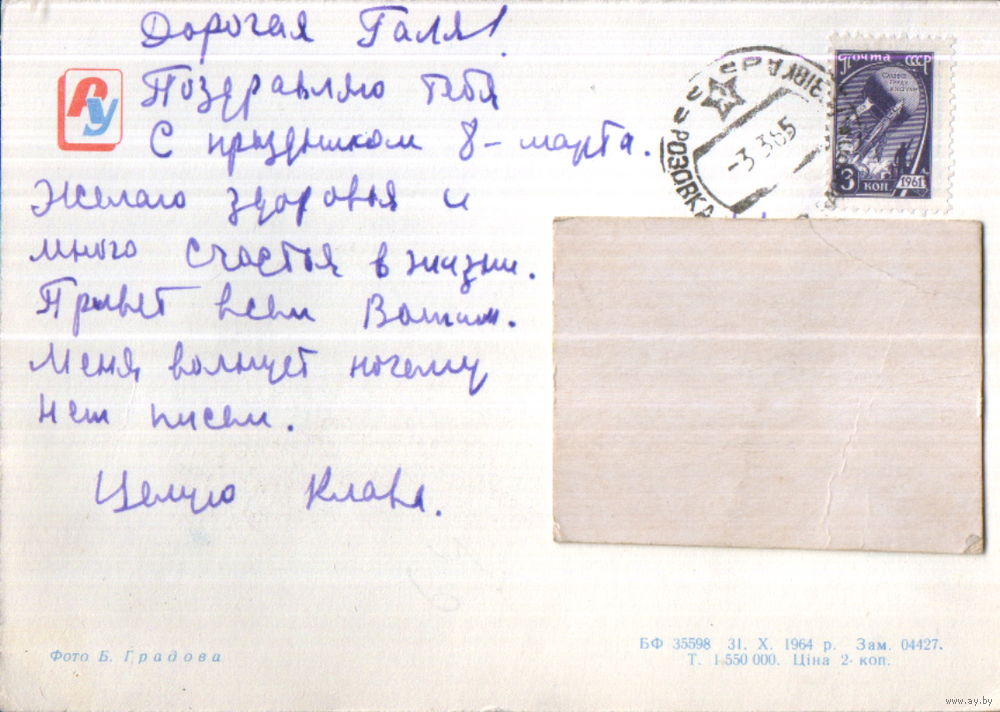 Дорогая Галя!
Поздравляю тебя
С праздником 8-марта.
Желаю здоровья и
много счастья в жизни.
Привет всем Вашим.
Меня волнует почему
нет писем.
Целую Клава.
Ау
РОЗОВКА
РОЗІВКА
-3 3 65
ПОчта СССР
3 коп 1961
Фото Б. Градова
БФ 35598 31. X. 1964 р. Зам. 04427.
Т. 1 550 000. Ціна 2 коп.
www.ay.by